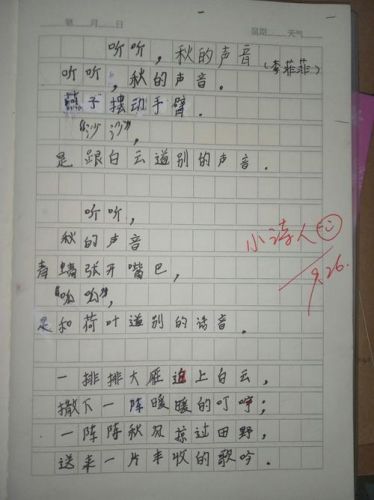 第 月 日 星期 天气
听听，秋的声音
（李菲菲）
听听，秋的声音。
燕子摆动手臂。
“沙沙”，
是跟白云道别的声音。
听听，
秋的声音
青蛙张开嘴巴，
“呱呱”，
是和荷叶道别的话音。
小诗人
9.26.
一排排大雁追上白云，
撒下一阵暖暖的叮咛；
一阵阵秋风掠过田野，
送来一片丰收的歌吟。